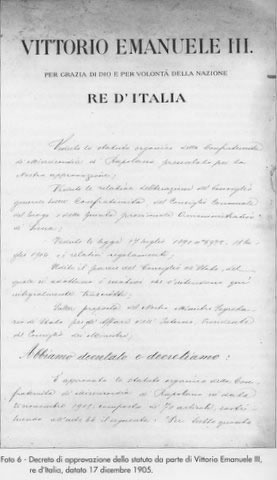 VITTORIO EMANUELE III.
PER GRAZIA DI DIO E PER VOLONTÀ DELLA NAZIONE
RE D'ITALIA
Veduto lo statuto organico della Confraternita
di Misericordia di Rapolano presentato per la
Nostra approvazione;
Veduta la relativa deliberazione del Consiglio
generale della Confraternita del Consiglio Comunale
del luogo e della Giunta provinciale Amministrativa
di Siena;
Veduta la legge 17 luglio 1890 n° 6972, 18 lu-
glio 1904 e i relativi regolamenti;
Udito il parere del Consiglio di Stato, del
quale si adottano i motivi che s'intendono qui
integralmente trascritti;
Sulla proposta del Nostro Ministro Segreta-
rio di Stato per gli Affari dell'Interno, Presidente
del Consiglio dei Ministri;
Abbiamo decretato e decretiamo:
È approvato lo statuto organico della Con-
fraternita di Misericordia di Rapolano in data
novembre composto di articoli
Foto 6 - Decreto di approvazione dello statuto da parte di Vittorio Emanuele III,
re d'Italia, datato 17 dicembre 1905.